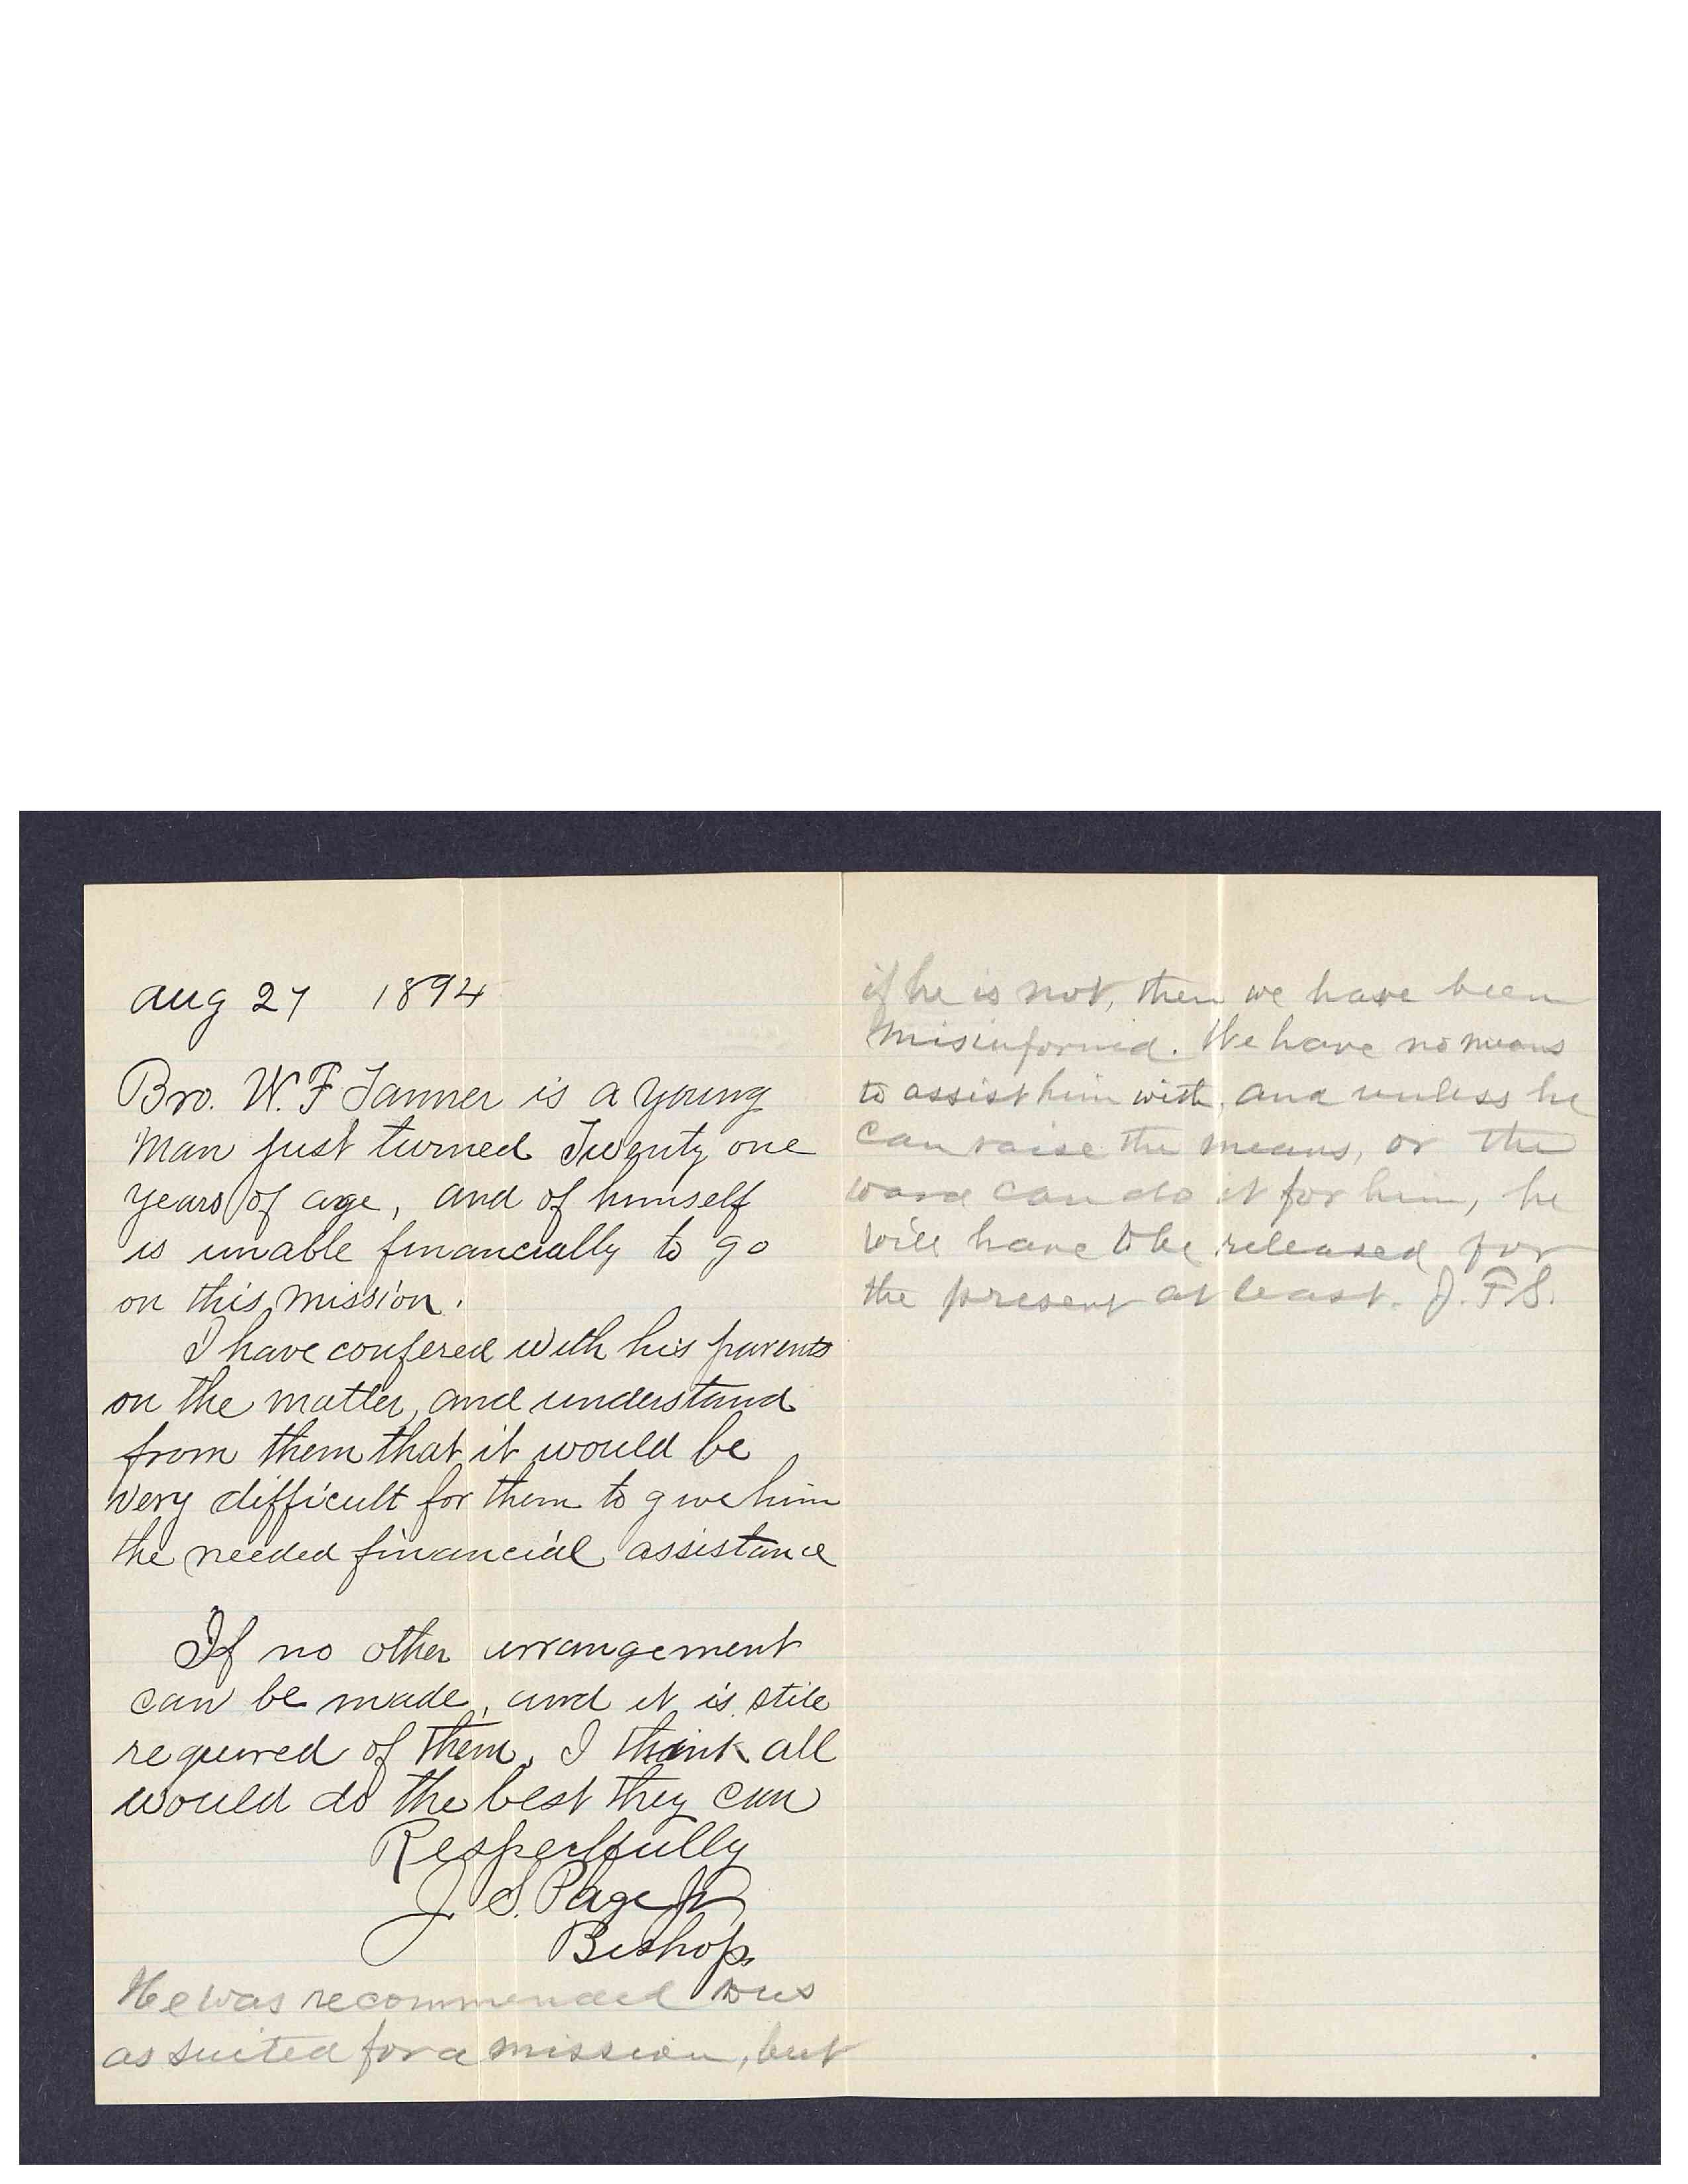 Aug 27 1894
Bro. W. F Tanner is a young
man just turned Twenty one
years of age, and of himself
is unable financially to go
on this mission.
I have confered with his parents
on the matter, and understand
from them that it would be
very difficult for them to give him
the needed financial assistance
If no other arrangement
can be made, and it is still
required of them, I think all
would do the best they can
Respectfully
J. S. Page Jr
Bishop.
He was recommended to us
as suited for a mission, but
if he is not, then we have been
misinformed. We have no means
to assist him with, and unless he
can raise the means, or the
ward can do it for him, he
will have to be released for
the present at least. J. F. S.